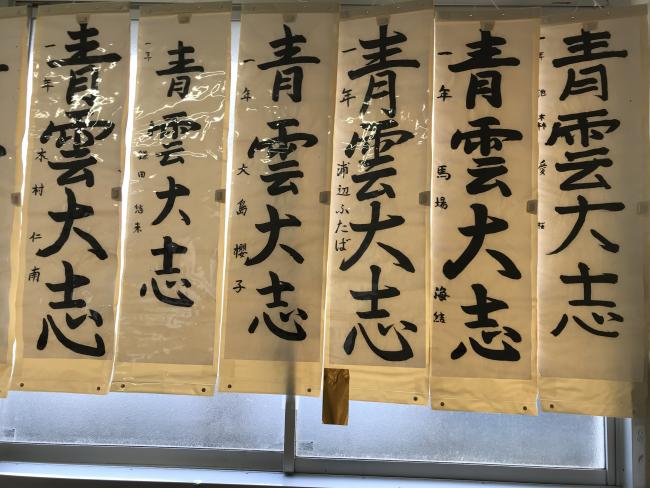 青雲大志
一年
青雲大志
一年 馬場海結
青雲大志
一年 浦辺ふたば
青雲大志
一年 大島櫻子
青雲大志
一年
青雲大志
一年 木村仁南